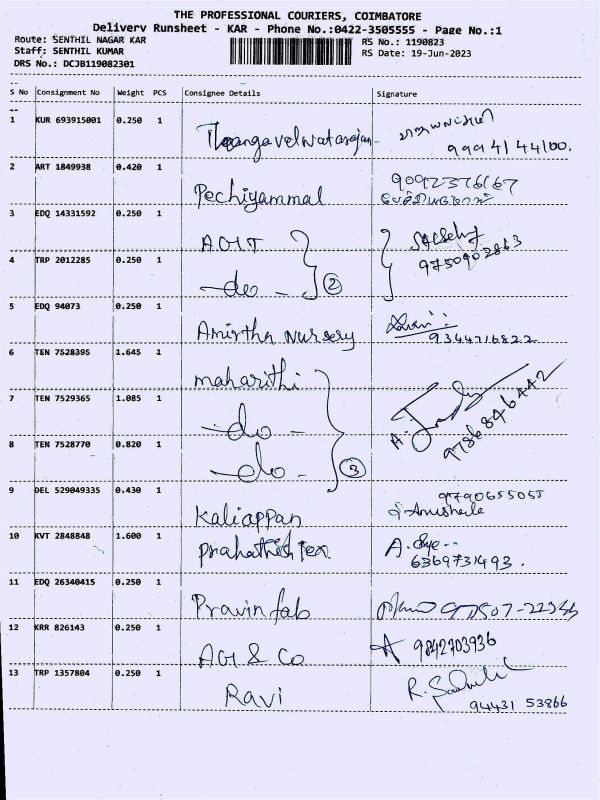 THE PROFESSIONAL COURIERS, COIMBATORE
Delivery Runsheet - KAR - Phone No.:0422-3505555 - Page No.:1
Route: SENTHIL NAGAR KAR
RS No.: 1190823
Staff: SENTHIL KUMAR
RS Date: 19-Jun-2023
DRS No.: DCJB119082301
S No Consignment No Weight PCS Consignee Details Signature
1 KUR 693915001 0.250 1 Thangavel Natarajan
99941 44100.
2 ART 1849938 0.420 1 Pechiyammal
9092376167
3 EDQ 14331592 0.250 1 AGIT
4 TRP 2012285 0.250 1 - do - 2
9750902863
5 EDQ 94073 0.250 1 Amirtha Nursery
9344716822
6 TEN 7528395 1.645 1 maharithi
7 TEN 7529365 1.085 1 - do -
9786846442
8 TEN 7528770 0.820 1 - do - 3
9 DEL 529049335 0.430 1 Kaliappan
9790655055
10 KVT 2848848 1.600 1 prahathish Tex.
6369731493.
11 EDQ 26340415 0.250 1 Pravin fab
97507-22346
12 KRR 826143 0.250 1 AGI & Co
9842703936
13 TRP 1357804 0.250 1 Ravi
94431 53866